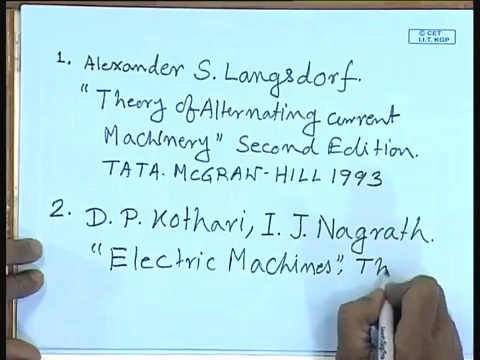 © CET
I.I.T. KGP
1. Alexander S. Langsdorf.
"Theory of Alternating current
Machinery" Second Edition.
TATA. MCGRAW-HILL 1993
2. D. P. Kothari, I. J. Nagrath.
"Electric Machines", Th